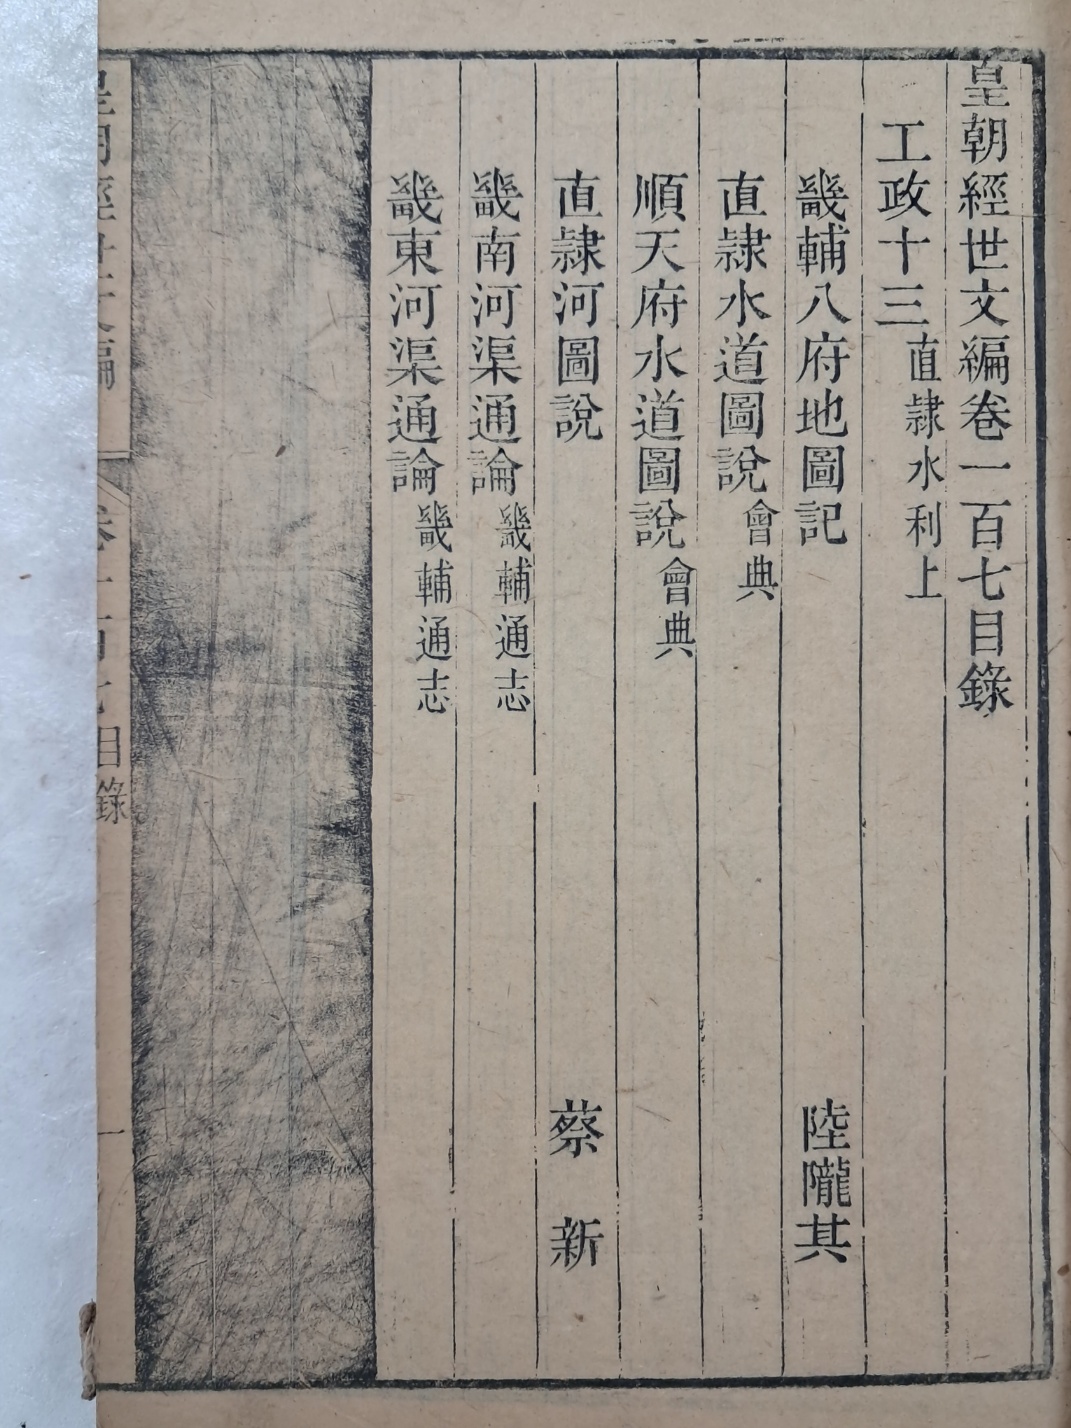 皇朝經世文編卷一百七目錄
工政十三直隸水利上
畿輔八府地圖記 陸隴其
直隸水道圖說會典
順天府水道圖說會典
直隸河圖說 蔡新
畿南河渠通論畿輔通志
畿東河渠通論畿輔通志
皇朝經世文編 卷一百七目錄 一